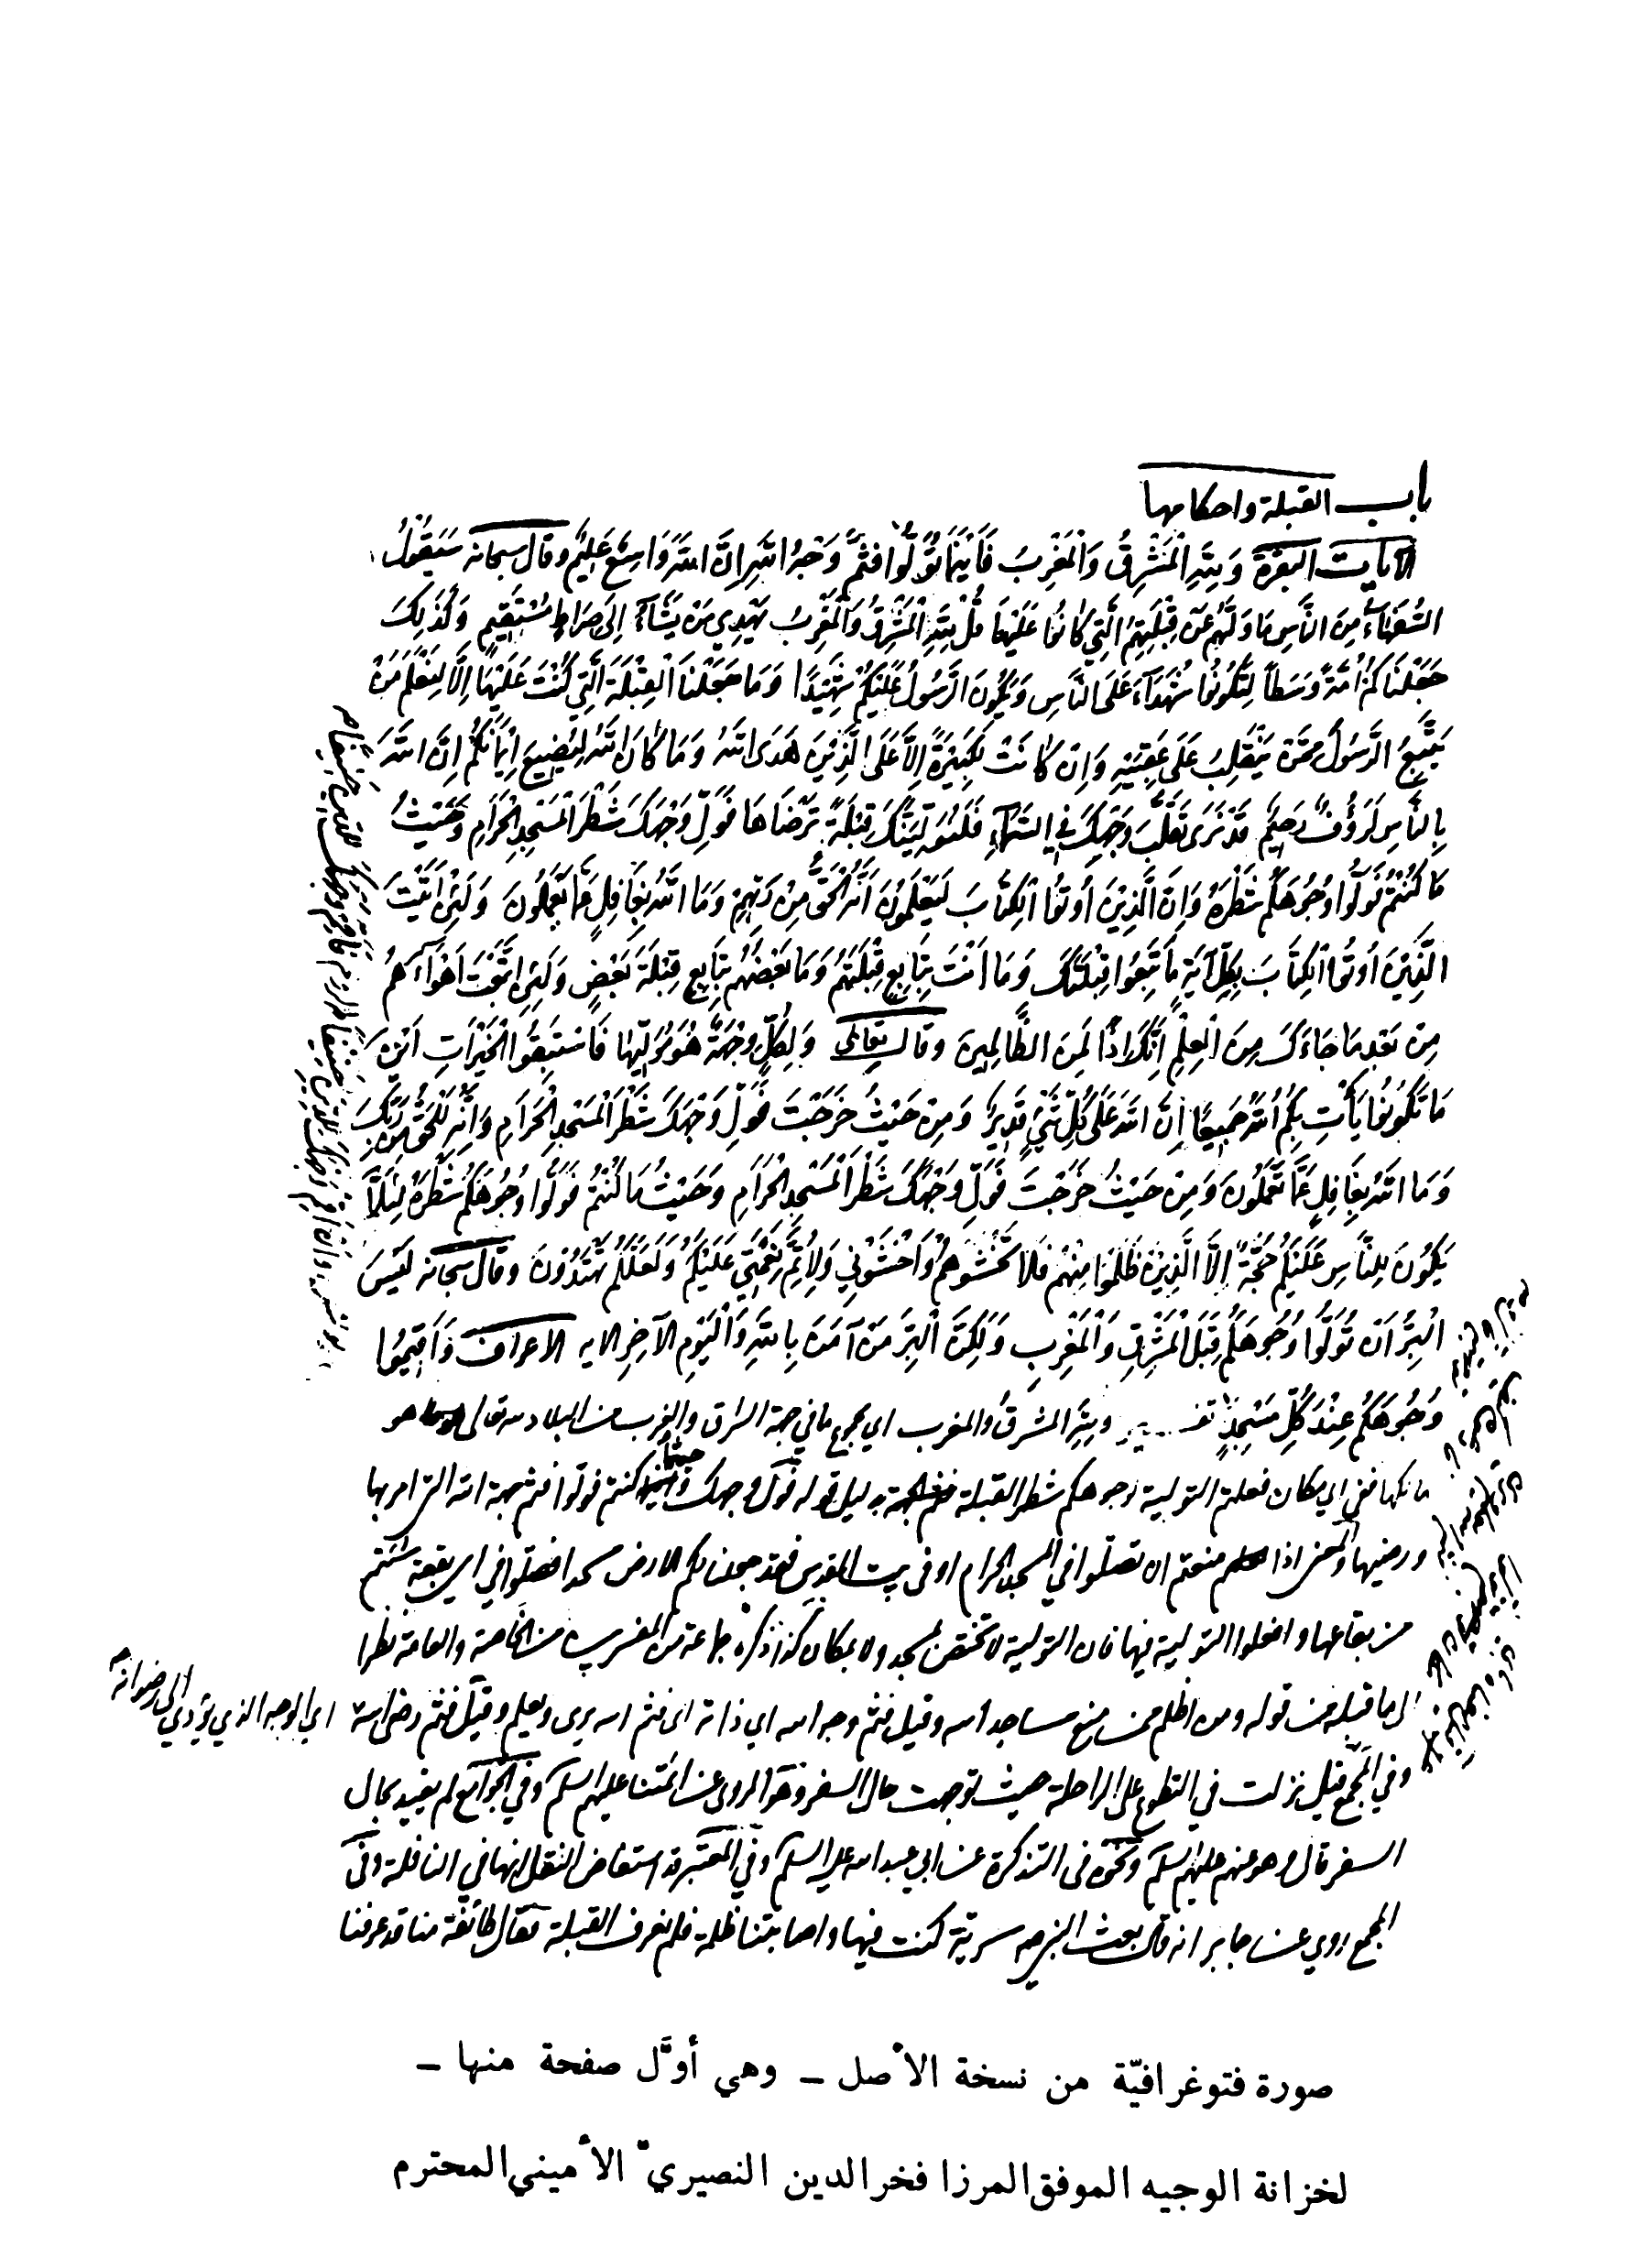 باب القبلة واحكامها
الايات البقرة وَلِلَّهِ الْمَشْرِقُ وَالْمَغْرِبُ فَأَيْنَمَا تُوَلُّوا فَثَمَّ وَجْهُ اللَّهِ إِنَّ اللَّهَ وَاسِعٌ عَلِيمٌ وقال سبحانه سَيَقُولُ
السُّفَهَاءُ مِنَ النَّاسِ مَا وَلَّيهُمْ عَنْ قِبْلَتِهِمُ الَّتِي كَانُوا عَلَيْهَا قُلْ لِلَّهِ الْمَشْرِقُ وَالْمَغْرِبُ يَهْدِي مَنْ يَشَآءُ إِلَى صِرَاطٍ مُسْتَقِيمٍ وَكَذَلِكَ
جَعَلْنَاكُمْ أُمَّةً وَسَطاً لِتَكُونُوا شُهَدَآءَ عَلَى النَّاسِ وَيَكُونَ الرَّسُولُ عَلَيْكُمْ شَهِيدًا وَمَا جَعَلْنَا الْقِبْلَةَ الَّتِي كُنْتَ عَلَيْهَا إِلَّا لِنَعْلَمَ مَنْ
يَتَّبِعُ الرَّسُولَ مِمَّنْ يَنْقَلِبُ عَلَى عَقِبَيْهِ وَإِنْ كَانَتْ لَكَبِيرَةً إِلَّا عَلَى الَّذِينَ هَدَى اللَّهُ وَمَا كَانَ اللَّهُ لِيُضِيعَ إِيمَانَكُمْ إِنَّ اللَّهَ
بِالنَّاسِ لَرَؤُفٌ رَحِيمٌ قَدْ نَرَى تَقَلُّبَ وَجْهِكَ فِي السَّمَآءِ فَلَنُوَلِّيَنَّكَ قِبْلَةً تَرْضَاهَا فَوَلِّ وَجْهَكَ شَطْرَ الْمَسْجِدِ الْحَرَامِ وَحَيْثُ
مَا كُنْتُمْ فَوَلُّوا وُجُوهَكُمْ شَطْرَهُ وَإِنَّ الَّذِينَ أُوتُوا الْكِتَابَ لَيَعْلَمُونَ أَنَّهُ الْحَقُّ مِنْ رَبِّهِمْ وَمَا اللَّهُ بِغَافِلٍ عَمَّا يَعْمَلُونَ وَلَئِنْ أَتَيْتَ
الَّذِينَ أُوتُوا الْكِتَابَ بِكُلِّ آيَةٍ مَا تَبِعُوا قِبْلَتَكَ وَمَا أَنْتَ بِتَابِعٍ قِبْلَتَهُمْ وَمَا بَعْضُهُمْ بِتَابِعٍ قِبْلَةَ بَعْضٍ وَلَئِنِ اتَّبَعْتَ أَهْوَآءَهُمْ
مِنْ بَعْدِ مَا جَاءَكَ مِنَ الْعِلْمِ إِنَّكَ إِذًا لَمِنَ الظَّالِمِينَ وقال تعالى وَلِكُلٍّ وِجْهَةٌ هُوَ مُوَلِّيهَا فَاسْتَبِقُوا الْخَيْرَاتِ أَيْنَ
مَا تَكُونُوا يَأْتِ بِكُمُ اللَّهُ جَمِيعًا إِنَّ اللَّهَ عَلَى كُلِّ شَيْءٍ قَدِيرٌ وَمِنْ حَيْثُ خَرَجْتَ فَوَلِّ وَجْهَكَ شَطْرَ الْمَسْجِدِ الْحَرَامِ وَإِنَّهُ لَلْحَقُّ مِنْ رَبِّكَ
وَمَا اللَّهُ بِغَافِلٍ عَمَّا تَعْمَلُونَ وَمِنْ حَيْثُ خَرَجْتَ فَوَلِّ وَجْهَكَ شَطْرَ الْمَسْجِدِ الْحَرَامِ وَحَيْثُ مَا كُنْتُمْ فَوَلُّوا وُجُوهَكُمْ شَطْرَهُ لِئَلَّا
يَكُونَ لِلنَّاسِ عَلَيْكُمْ حُجَّةٌ إِلَّا الَّذِينَ ظَلَمُوا مِنْهُمْ فَلَا تَخْشَوْهُمْ وَاخْشَوْنِي وَلِأُتِمَّ نِعْمَتِي عَلَيْكُمْ وَلَعَلَّكُمْ تَهْتَدُونَ وقال سبحانه لَيْسَ
الْبِرَّ أَنْ تُوَلُّوا وُجُوهَكُمْ قِبَلَ الْمَشْرِقِ وَالْمَغْرِبِ وَلَكِنَّ الْبِرَّ مَنْ آمَنَ بِاللَّهِ وَالْيَوْمِ الْآخِرِ الايه الاعراف وَأَقِيمُوا
وُجُوهَكُمْ عِنْدَ كُلِّ مَسْجِدٍ تفسير ولله المشرق والمغرب اي مجموع ما في جهة الشرق والغرب من البلاد لله تعالى هو
مالكها ففي اي مكان فعلتم التولية وجوهكم شطر القبلة بدليل قوله فول وجهك وحيثما كنتم فولوا فثم جهة الله التي امر بها
ورضيها والمعنى اذا منعتم ان تصلوا في المسجد الحرام او في بيت المقدس فقد جعلنا لكم الارض مسجدا فصلوا في اي بقعة شئتم
من بقاعها وافعلوا التولية فيها فان التولية لا تختص بمسجد ولا بمكان كذا ذكره جماعة من المفسرين من الخاصة والعامة نظرا
الى ما قبله من قوله ومن اظلم ممن منع مساجد الله وقيل فثم وجه الله اي ذاته اى فثم الله يرى ويعلم وقيل فثم رضى الله اي الوجه الذي يؤدي الى رضوانه
وفي المجمع قيل نزلت في التطوع على الراحلة حيث توجهت حال السفر وهو المروى عن ائمتنا عليهم السلم وفي الجوامع لم يقيد بحال
السفر قال وهو عنهم عليهم السلم ونحوه فى التذكرة عن ابي عبد الله عليه السلم وفي المعتبر قد استفاض النقل انها في النافلة وفى
المجمع روي عن جابر انه قال بعث النبي ص سرية كنت فيها واصابتنا ظلمة فلم نعرف القبلة فقال طائفة منا قد عرفنا
صورة فتوغرافيّة من نسخة الأصل ـ وهي أوَّل صفحة منها ـ
لخزانة الوجيه الموفق المرزا فخر الدين النصيريّ الأميني المحترم